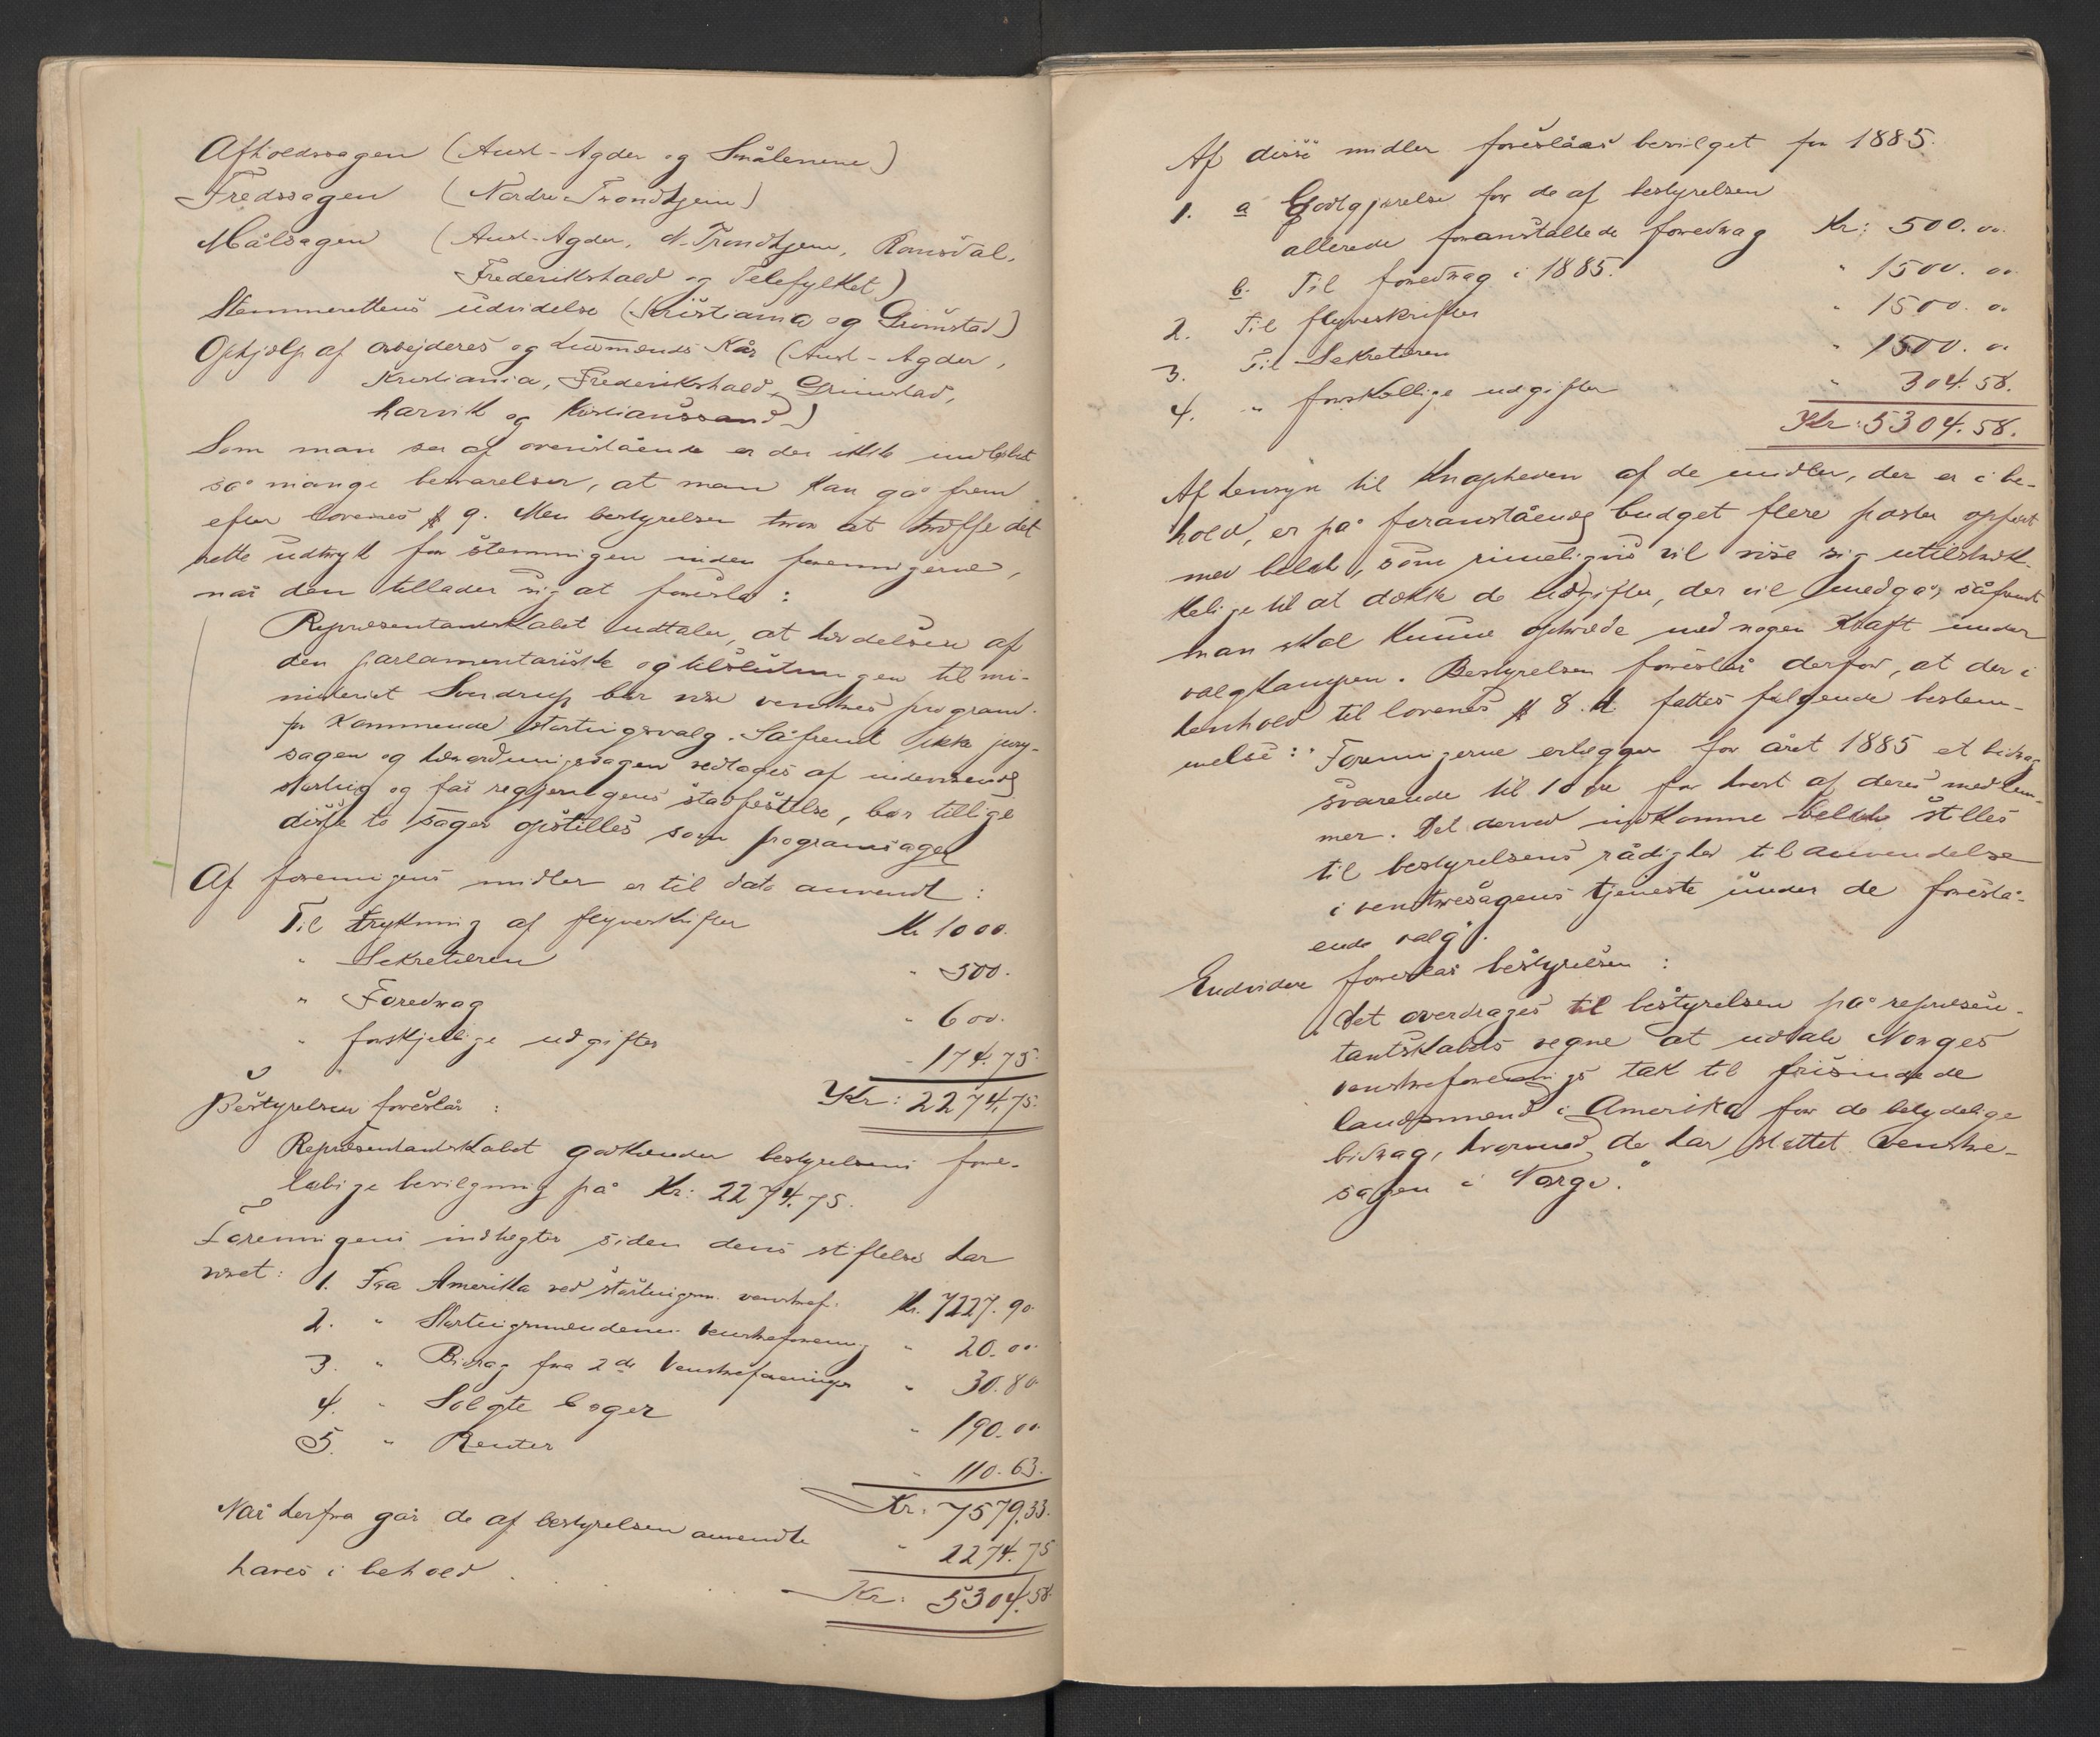 Afholdssagen (Aust-Agder og Smålenene)
Fredssagen (Nordre Trondhjem)
Målsagen (Aust-Agder, N-Trondhjem, Romsdal,
Frederikshald og Telefylket)
Stemmerettens udvidelse (Kristiania og Grimstad)
Ophjælp af arbejderes og husmænds Kår (Aust-Agder,
Kristiania, Frederikshald, Grimstad,
Larvik og Kristianssand)
Som man ser af ovenstående er der ikke indløbet
så mange besvarelser, at man kan gå frem
efter lovenes § 9. Men bestyrelsen tror at træffe det
rette udtryk for stemningen inden foreningerne,
når den tillader sig at foreslå:
Repræsentantskabet udtaler, at hævdelsen af
den parlamentariske og tilslutningen til mi-
nisteriet Sverdrup bør være venstres program
for kommende stortingsvalg. Såfremt ikke jury-
sagen og hærordningssagen vedtages af indeværende
storting og får regjeringens stadfæstelse, bør tillige
disse to sager opstilles som programsager
Af foreningens midler er til dato anvendt:
Til trykning af flyveskrifter Kr 1000.
" Sekretæren " 500.
" Foredrag " 600.
" forskjellige udgifter " 174.75.
Kr: 2274,75.
Bestyrelsen foreslår:
Repræsentantskabet godkjender bestyrelsens fore-
løbige bevilgning på Kr: 2274,75.
Foreningens indtægter siden dens stiftelse har
været: 1. Fra Amerika ved stortingsm. venstref. Kr. 7227.90
2. " Stortingsmændenes Venstreforening " 20.00
3. " Bidrag fra 2de Venstreforeninger " 30.80
4. " Solgte bøger " 190.00
5. " Renter " 110.63.
Kr: 7579,33.
Når herfra går de af bestyrelsen anvendte " 2274.75
haves i behold . . . Kr: 5304,58
Af disse midler foreslåes bevilget for 1885.
1. a Godtgjørelse for de af bestyrelsen
allerede foranstaltede foredrag Kr: 500.00.
b. Til foredrag i 1885. " 1500.00
2. Til flyveskrifter " 1500.00
3. Til Sekretæren " 1500.00
4. " forskjellige udgifter " 304.58.
Kr: 5304.58.
Af hensyn til Knapheden af de midler, der er i be-
hold, er på foranstående budget flere poster opført
med beløb, som rimeligvis vil vise sig utilstræk-
kelige til at dække de udgifter, der vil medgå, såfremt
man skal kunne optræde med nogen Kraft under
valgkampen. Bestyrelsen foreslår derfor, at der i
henhold til lovenes § 8. d. fattes følgende bestem-
melse: "Foreningerne erlægger for året 1885 et bidrag
svarende til 10 øre for hvert af deres medlem-
mer. Det derved indkomne beløb stilles
til bestyrelsens rådighed til anvendelse
i venstresagens tjeneste under de forestå-
ende valg".
Endvidere foreslår bestyrelsen:
"Det overdrages til bestyrelsen på repræsen-
tantskabets vegne at udtale Norges
venstreforenings tak til frisindede
landsmænd i Amerika for de betydelige
bidrag, hvormed de har støttet venstre-
sagen i Norge."